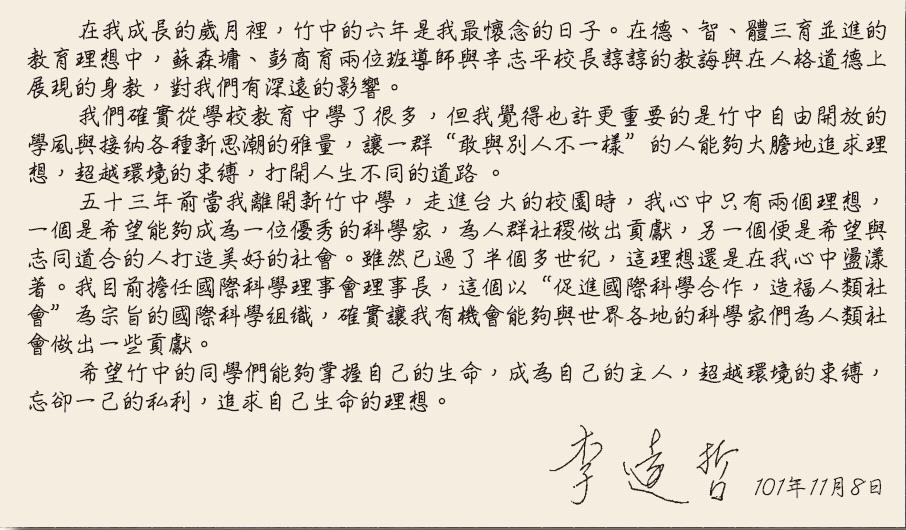 在我成長的歲月裡，竹中的六年是我最懷念的日子。在德、智、體三育並進的
教育理想中，蘇森墉、彭商育兩位班導師與辛志平校長諄諄的教誨與在人格道德上
展現的身教，對我們有深遠的影響。
我們確實從學校教育中學了很多，但我覺得也許更重要的是竹中自由開放的
學風與接納各種新思潮的雅量，讓一群“敢與別人不一樣”的人能夠大膽地追求理
想，超越環境的束縛，打開人生不同的道路 。
五十三年前當我離開新竹中學，走進台大的校園時，我心中只有兩個理想，
一個是希望能夠成為一位優秀的科學家，為人群社稷做出貢獻，另一個便是希望與
志同道合的人打造美好的社會。雖然已過了半個多世紀，這理想還是在我心中盪漾
著。我目前擔任國際科學理事會理事長，這個以“促進國際科學合作，造福人類社
會”為宗旨的國際科學組織，確實讓我有機會能夠與世界各地的科學家們為人類社
會做出一些貢獻。
希望竹中的同學們能夠掌握自己的生命，成為自己的主人，超越環境的束縛，
忘卻一己的私利，追求自己生命的理想。
李遠哲 101年11月8日